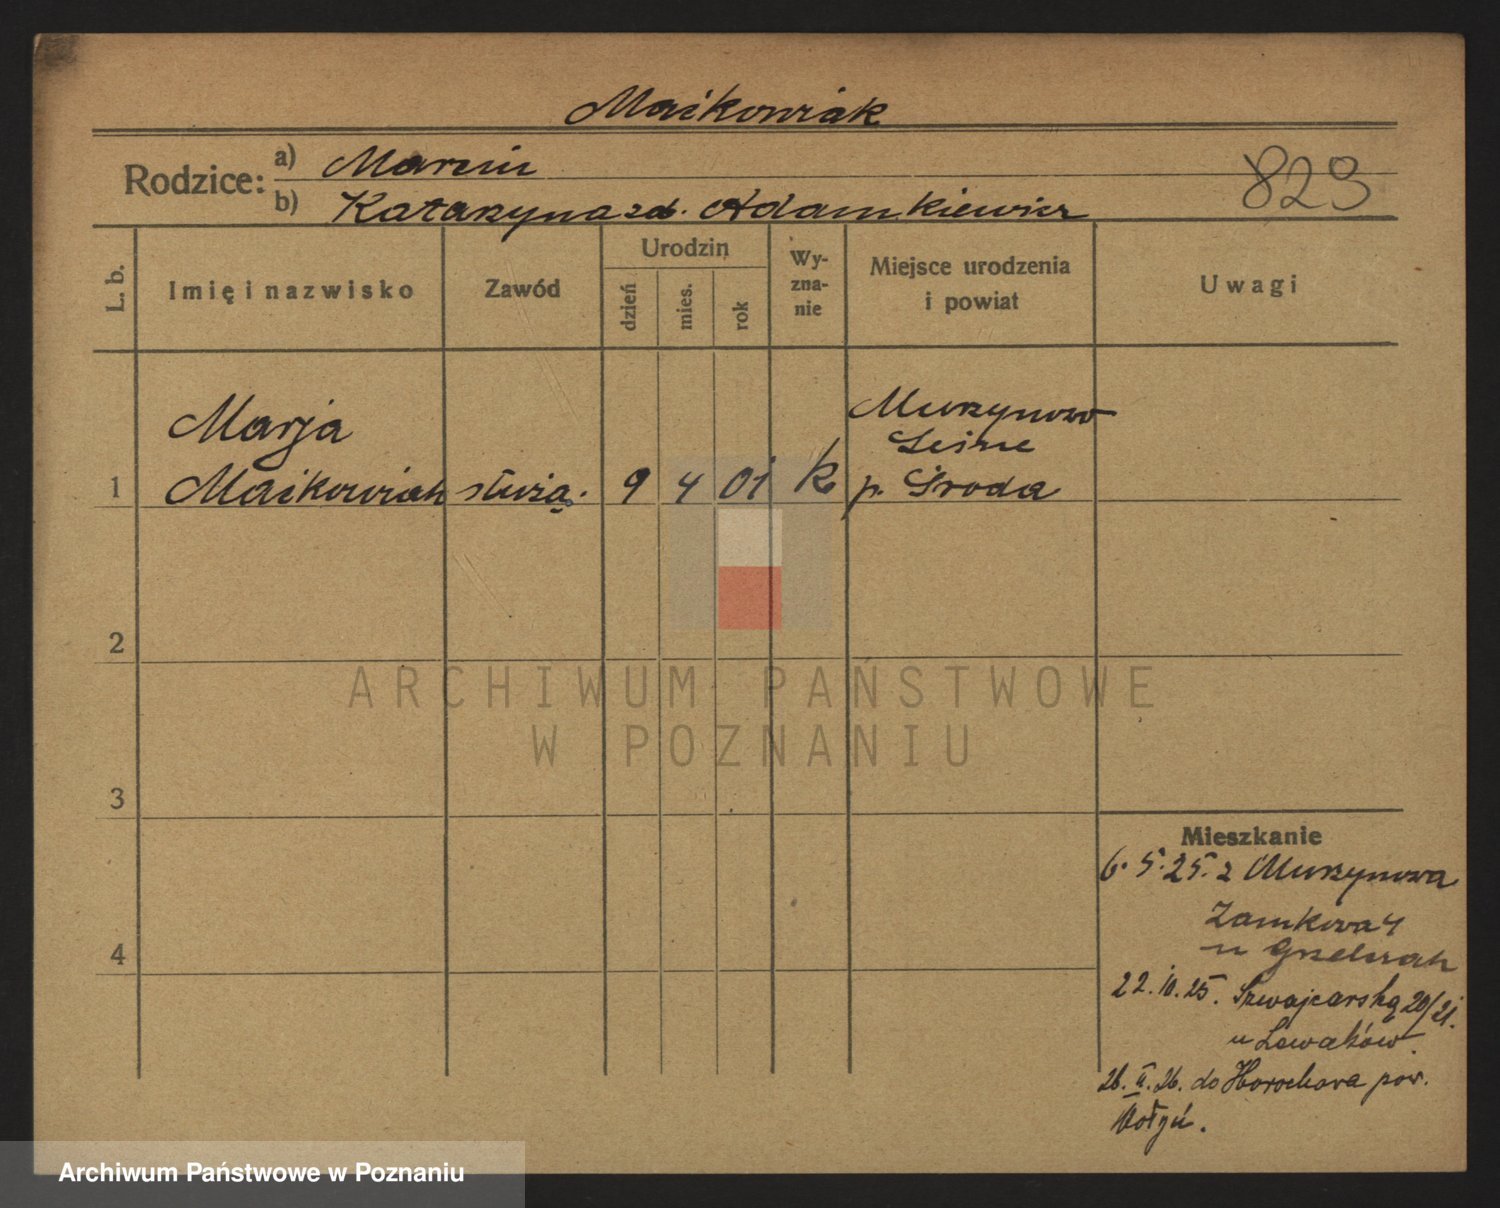 Maikowiak
Rodzice:
a) Marcin
b) Katarzyna zd. Adamkiewicz
823
L. b.
Imię i nazwisko
Zawód
Urodzin
dzień
mies.
rok
Wy-
zna-
nie
Miejsce urodzenia
i powiat
Uwagi
Marja
Maikowiak
służą.
9
4
01
k
Murzynowo
Leśne
p. Środa
1
2
3
4
ARCHIWUM PAŃSTWOWE
W POZNANIU
Mieszkanie
6. 5. 25. z Murzynowa
Zamkowa 4
u Grzelczak
22. 10. 25. Szwajcarska 20/21.
u Lewaków
26. II. 26. do Horochowa pow.
Wołyń.
Archiwum Państwowe w Poznaniu